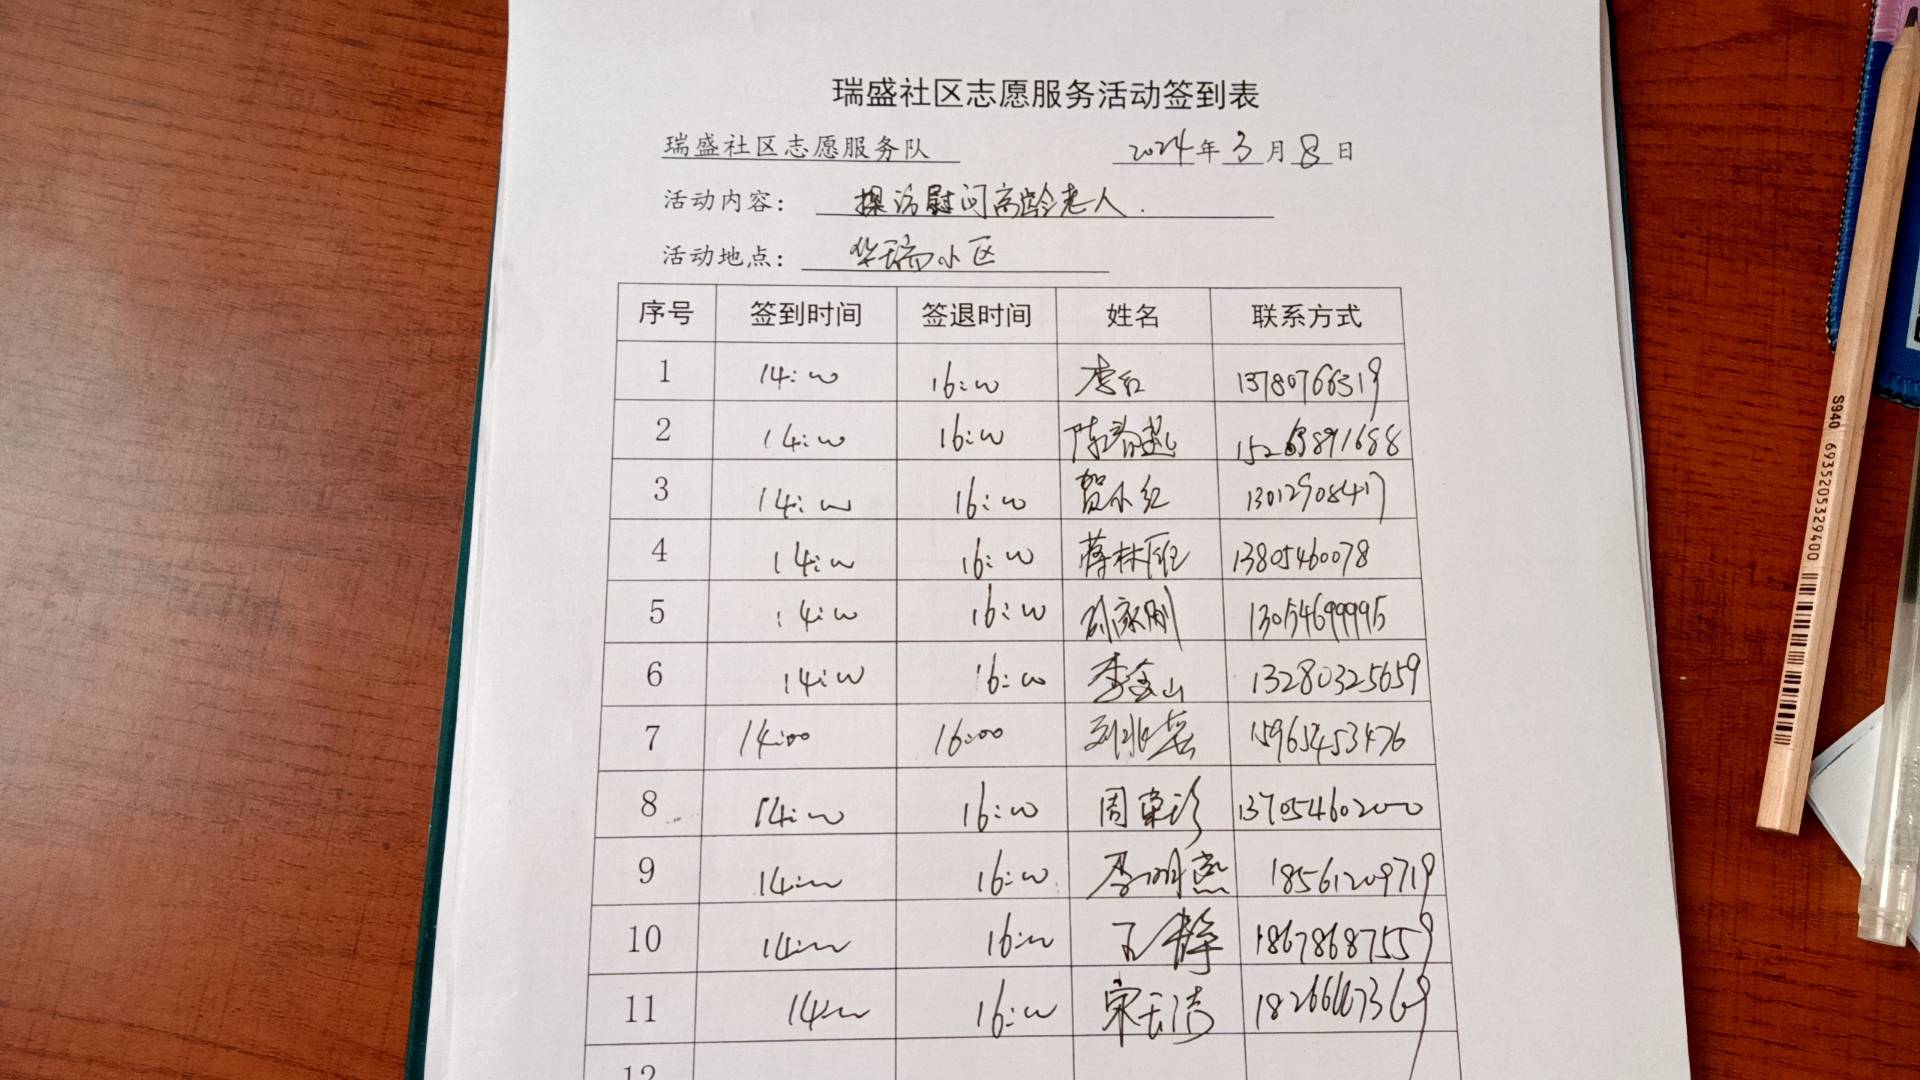 瑞盛社区志愿服务活动签到表
瑞盛社区志愿服务队 2024年3月8日
活动内容： 探访慰问高龄老人.
活动地点： 华瑞小区
序号 签到时间 签退时间 姓名 联系方式
1 14:00 16:00 李红 13780766319
2 14:00 16:00 陈春燕 15263891688
3 14:00 16:00 贺小红 13012908417
4 14:00 16:00 蒋林 13805460078
5 14:00 16:00 刘家刚 13054699995
6 14:00 16:00 李金山 13280325659
7 14:00 16:00 刘兆 15965453476
8 14:00 16:00 周荣珍 13705460200
9 14:00 16:00 李明燕 18561209719
10 14:00 16:00 王静 18678687559
11 14:00 16:00 宋天清 18266667369
12
S940 6935205329400